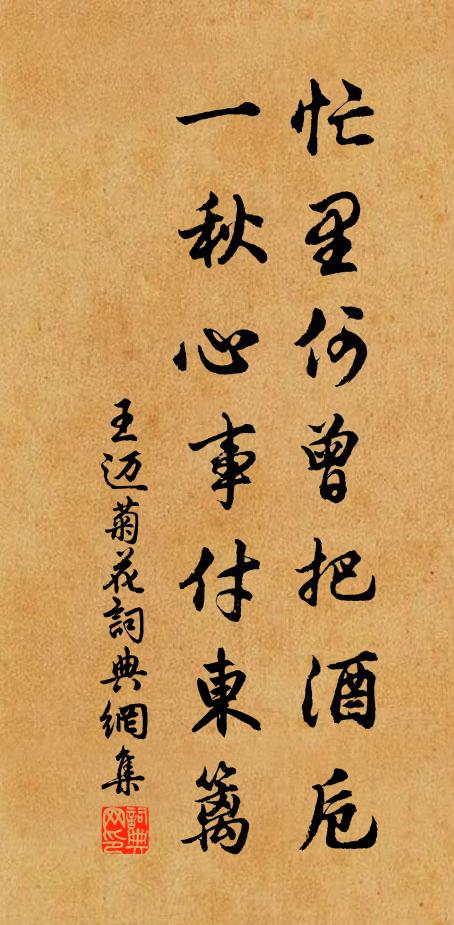 忙里何曾把酒卮
一秋心事付東籬
王迈菊花詞典網集
詞典网印